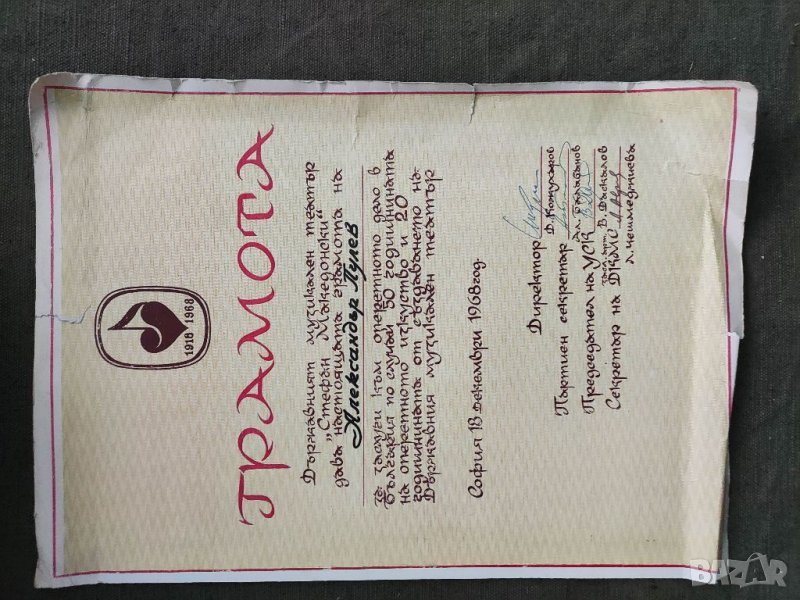 1918-1968
ГРАМОТА
Държавният музикален театър
"Стефан Македонски"
дава настоящата грамота на
Александър Лулев
за заслуги към оперетното дело в
България по случай 50 годишнината
на оперетното изкуство и 20
годишнината от създаването на
Държавния музикален театър
София 18 декември 1968 год.
Директор
Д. Кожухаров
Партиен секретар
Ал. Балабанов
Председател на УСК
В. Даскалов
Секретар на ДКМС
Л. Чешмеджиева
BAZAR